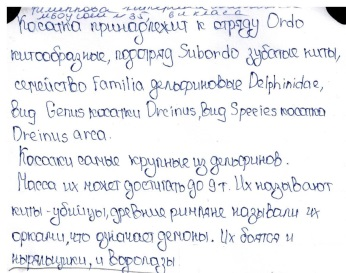 МБОУ СОШ № 35, 8 И класса
Косатка принадлежит к отряду Ordo
китообразные, подотряд Subordo зубатые киты,
семейство Familia дельфиновые Delphinidae,
вид Genus косатки Orcinus, вид Species косатка
Orcinus arca.
Косатки самые крупные из дельфинов.
Масса их может достигать до 9 т. Их называют
киты-убийцы, древние римляне называли их
орками, что означает демоны. Их боятся и
ныряльщики, и водолазы.